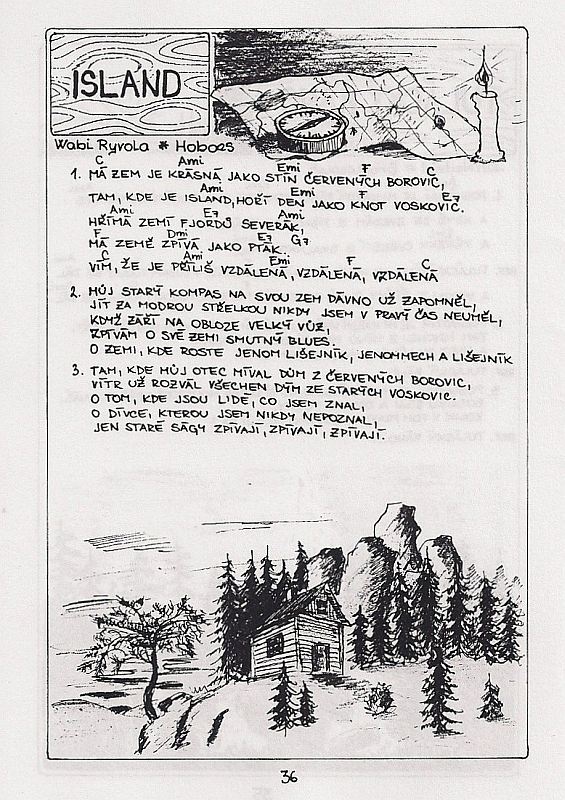 ISLAND
Wabi Ryvola * Hoboes
C Ami Emi F C
1. MÁ ZEM JE KRÁSNÁ JAKO STÍN ČERVENÝCH BOROVIC,
Ami Emi F E7
TAM, KDE JE ISLAND, HOŘÍ DEN JAKO KNOT VOSKOVIC.
Ami E7 Ami
HŘÍMÁ ZEMÍ FJORDŮ SEVERÁK,
F Dmi E7 G7
MÁ ZEMĚ ZPÍVÁ JAKO PTÁK.
C Ami Emi F C
VÍM, ŽE JE PŘÍLIŠ VZDÁLENÁ, VZDÁLENÁ, VZDÁLENÁ
2. MŮJ STARÝ KOMPAS NA SVOU ZEM DÁVNO UŽ ZAPOMNĚL,
JÍT ZA MODROU STŘELKOU NIKDY JSEM V PRAVÝ ČAS NEUMĚL,
KDYŽ ZÁŘÍ NA OBLOZE VELKÝ VŮZ,
ZPÍVÁM O SVÉ ZEMI SMUTNÝ BLUES.
O ZEMI, KDE ROSTE JENOM LIŠEJNÍK, JENOM MECH A LIŠEJNÍK
3. TAM, KDE MŮJ OTEC MÍVAL DŮM Z ČERVENÝCH BOROVIC,
VÍTR UŽ ROZVÁL VŠECHEN DÝM ZE STARÝCH VOSKOVIC.
O TOM, KDE JSOU LIDÉ, CO JSEM ZNAL,
O DÍVCE, KTEROU JSEM NIKDY NEPOZNAL,
JEN STARÉ SÁGY ZPÍVAJÍ, ZPÍVAJÍ, ZPÍVAJÍ.
36